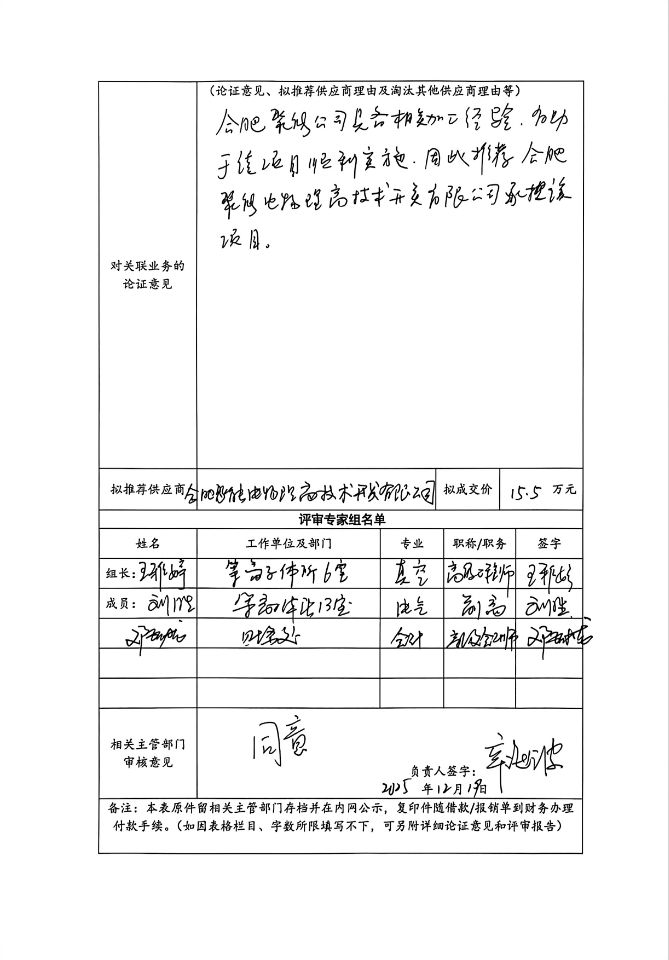 （论证意见、拟推荐供应商理由及淘汰其他供应商理由等）
合肥聚能公司具备相关加工经验，有助
于该项目顺利实施，因此推荐合肥
聚能电物理高技术开发有限公司承担该
项目。
对关联业务的
论证意见
拟推荐供应商 合肥聚能电物理高技术开发有限公司 拟成交价 15.5 万元
评审专家组名单
姓名 工作单位及部门 专业 职称/职务 签字
组长：王雅婷 等离子体所6室 真空 高级工程师 王雅婷
成员：刘胜 等离子体所13室 电气 副高 刘胜
财务处 会计
相关主管部门
审核意见
同意
负责人签字：
2025年12月19日
备注：本表原件留相关主管部门存档并在内网公示，复印件随借款/报销单到财务办理
付款手续。（如因表格栏目、字数所限填写不下，可另附详细论证意见和评审报告）